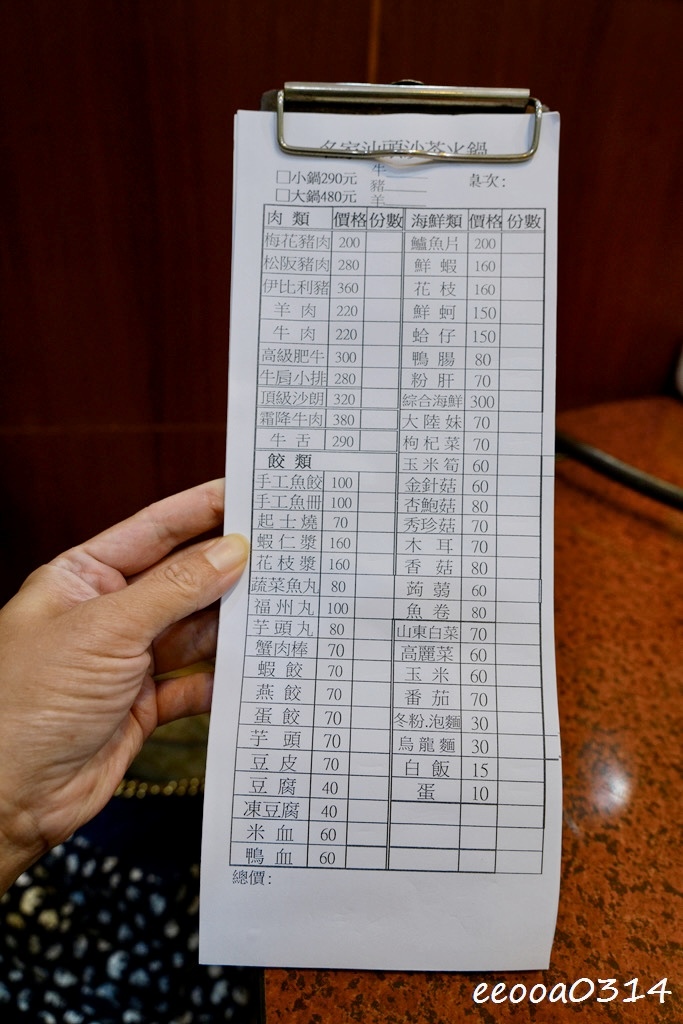 名家汕頭沙茶火鍋
□小鍋290元 牛 桌次：
□大鍋480元 豬
羊
肉類 價格 份數 海鮮類 價格 份數
梅花豬肉 200 鱸魚片 200
松阪豬肉 280 鮮蝦 160
伊比利豬 360 花枝 160
羊肉 220 鮮蚵 150
牛肉 220 蛤仔 150
高級肥牛 300 鴨腸 80
牛肩小排 280 粉肝 70
頂級沙朗 320 綜合海鮮 300
霜降牛肉 380 大陸妹 70
牛舌 290 枸杞菜 70
餃類 玉米筍 60
手工魚餃 100 金針菇 60
手工魚冊 100 杏鮑菇 80
起士燒 70 秀珍菇 70
蝦仁漿 160 木耳 70
花枝漿 160 香菇 80
蔬菜魚丸 80 蒟蒻 60
福州丸 100 魚卷 80
芋頭丸 80 山東白菜 70
蟹肉棒 70 高麗菜 60
蝦餃 70 玉米 60
燕餃 70 番茄 70
蛋餃 70 冬粉.泡麵 30
芋頭 70 烏龍麵 30
豆皮 70 白飯 15
豆腐 40 蛋 10
凍豆腐 40
米血 60
鴨血 60
總價：
eeooa0314